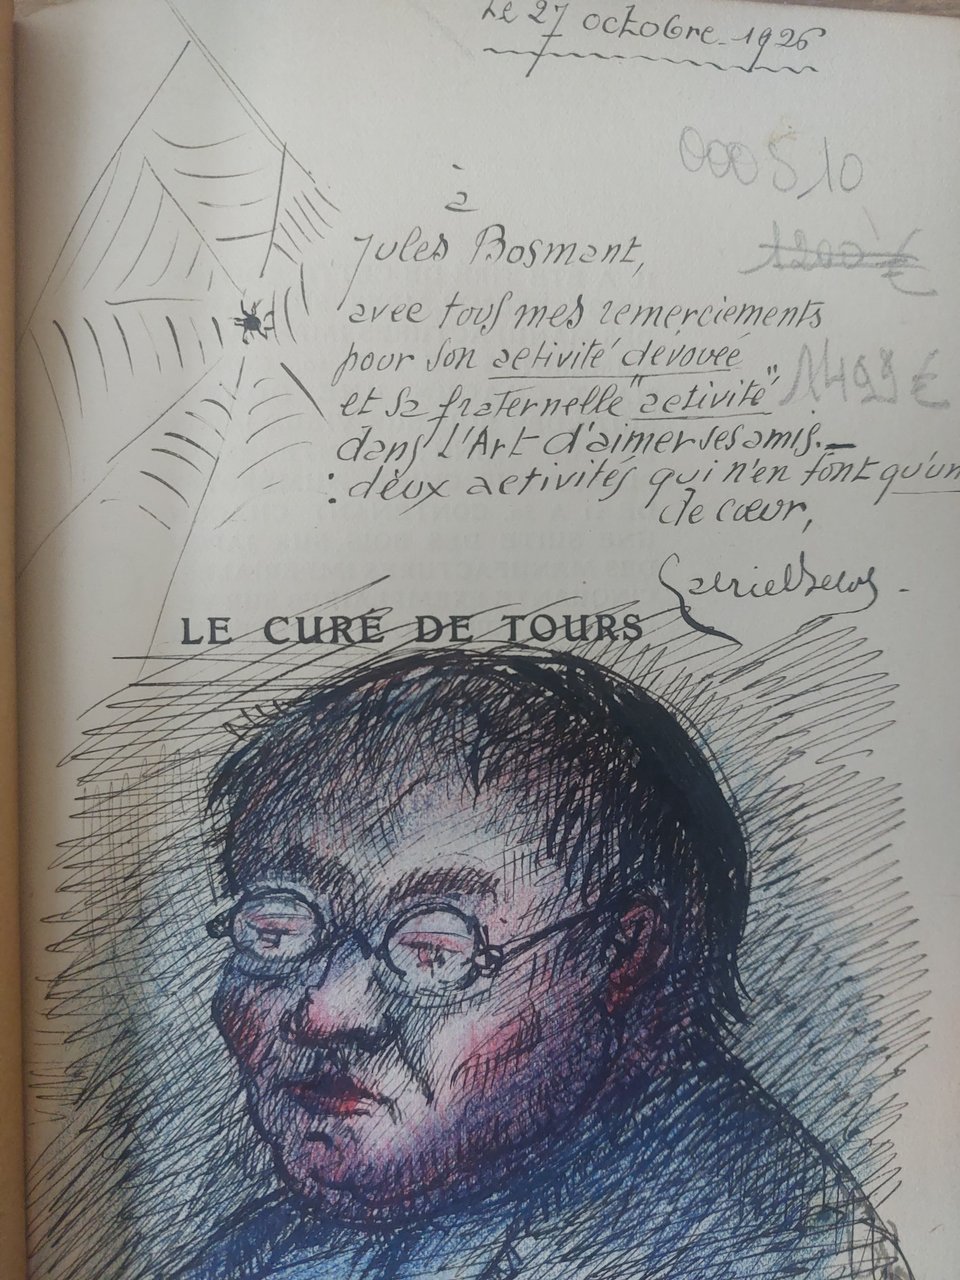 Le 27 octobre 1926
000 S 10
à
1200 €
Jules Bosmant,
avec tous mes remerciements
pour son activité dévouée
1499 €
et sa fraternelle "activité"
dans l'Art d'aimer ses amis.–
: deux activités qui n'en font qu'un
de cœur,
Gabriel Belot.
LE CURÉ DE TOURS